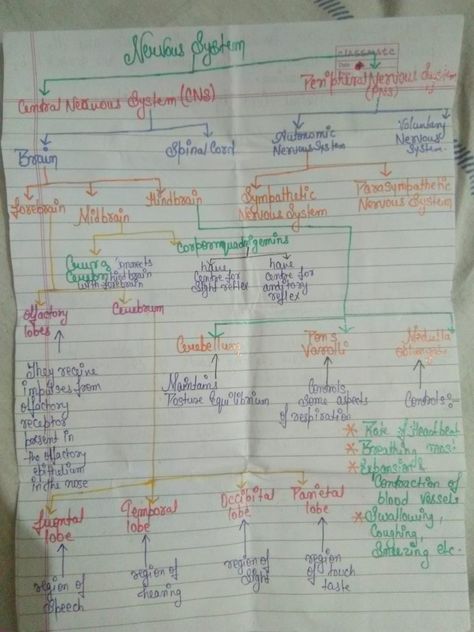 Nervous System
classmate
Date
Central Nervous System (CNS)
Peripheral Nervous System
(PNS)
Brain
Spinal Cord
Autonomic
Nervous System
Voluntary
Nervous
System
Forebrain
Midbrain
Hindbrain
Sympathetic
Nervous System
Parasympathetic
Nervous System
Corporaquadrigemins
Crura connects
Cerebri hindbrain
with forebrain
have
Centre for
sight reflex
have
centre for
auditory
reflex
Olfactory
lobes
Cerebrum
Cerebellum
Pons
Varolli
Medulla
oblongata
They recive
impulses from
olfactory
receptor
present in
the olfactory
epithelium
in the nose
Maintains
Posture Equilibrium
Controls
some aspects
of respiration
Controls:-
* Rate of Heartbeat
* Breathing
* Expansion &
Contraction of
blood vessels
* Swallowing,
Coughing,
Sneezing etc.
Frontal
lobe
Temporal
lobe
Occipital
lobe
Parietal
lobe
region of
speech
region of
hearing
region of
sight
region
of touch
taste